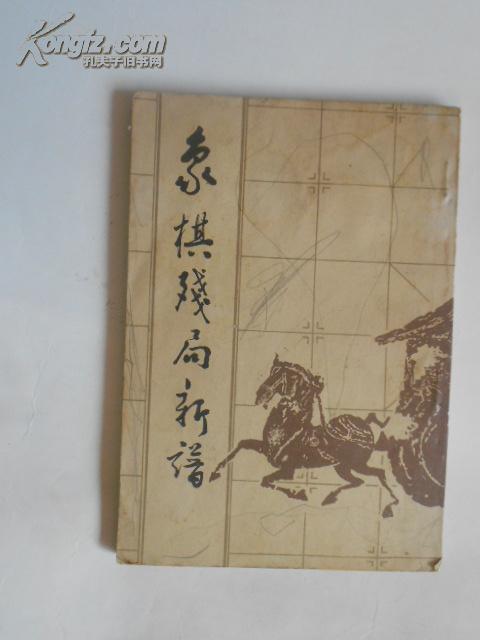 Kongfz.com
孔夫子旧书网
象棋殘局新譜